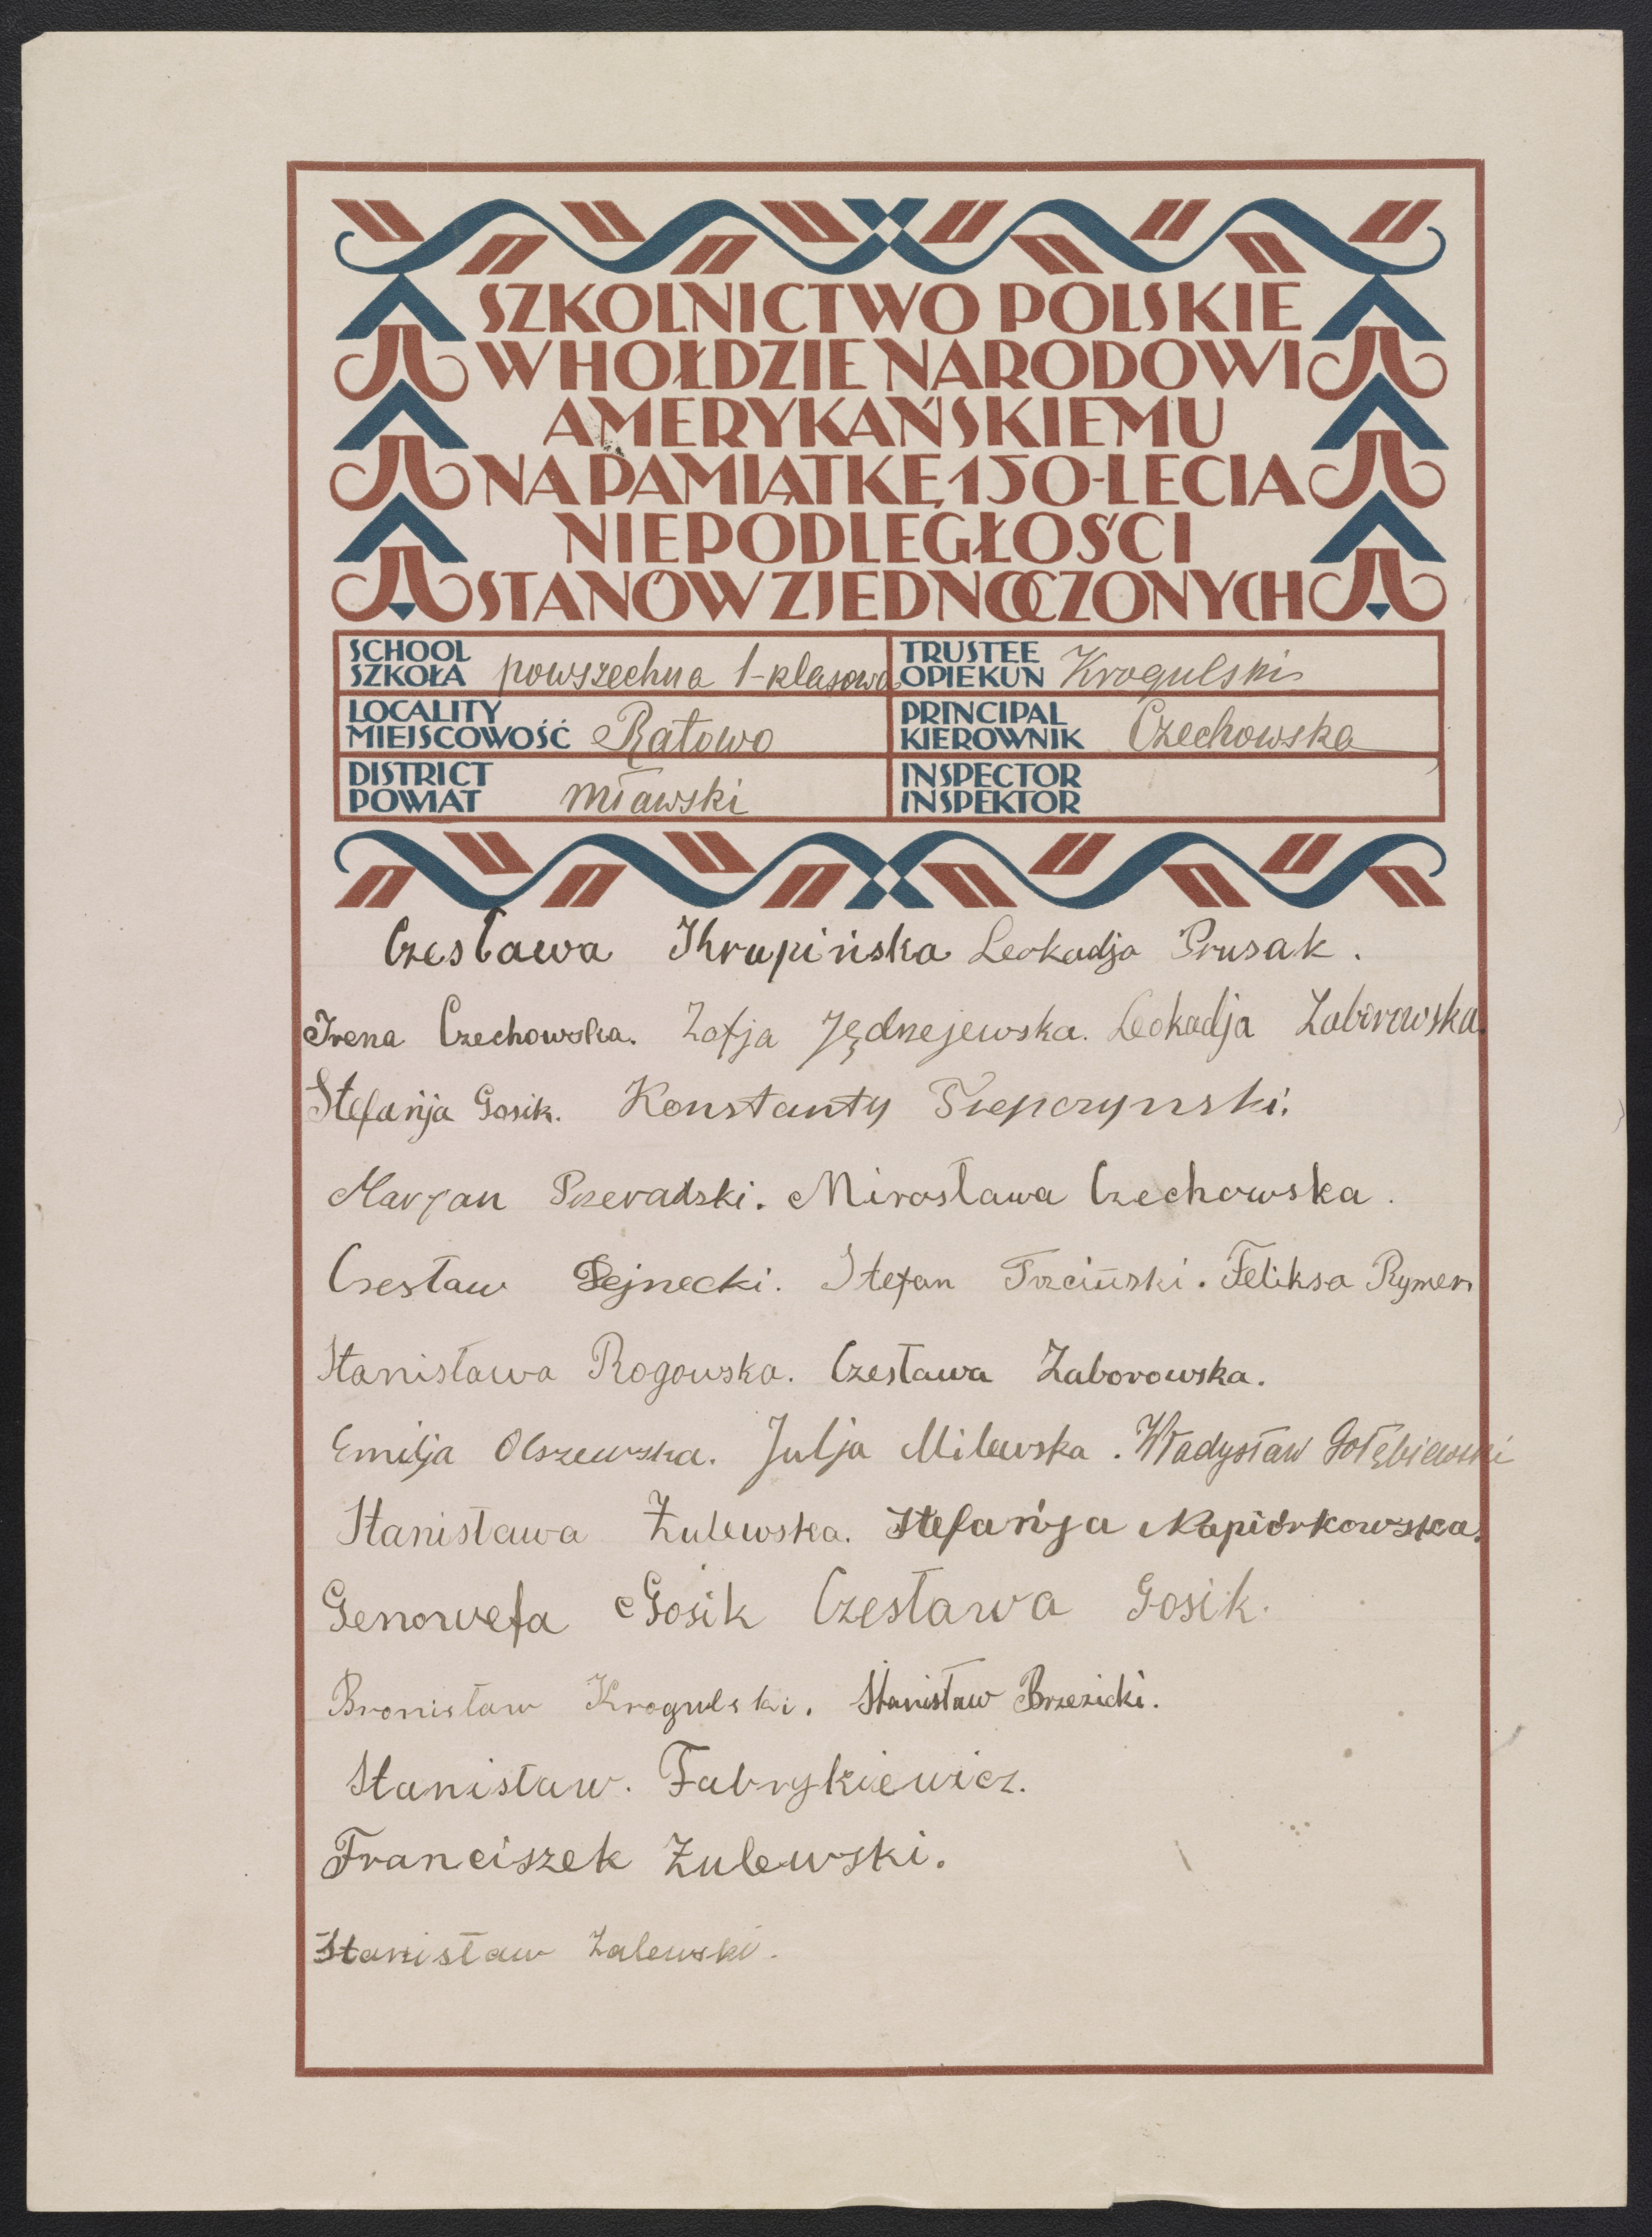 SZKOLNICTWO POLSKIE
W HOŁDZIE NARODOWI
AMERYKAŃSKIEMU
NA PAMIĄTKĘ 150-LECIA
NIEPODLEGŁOŚCI
STANÓW ZJEDNOCZONYCH
SCHOOL SZKOŁA powszechna 1-klasowa
TRUSTEE OPIEKUN Krogulski
LOCALITY MIEJSCOWOŚĆ Ratowo
PRINCIPAL KIEROWNIK Czechowska
DISTRICT POWIAT mławski
INSPECTOR INSPEKTOR
Czesława Krupińska Leokadja Prusak.
Irena Czechowska. Zofja Jędrzejewska. Leokadja Zaborowska.
Stefanja Gosik. Konstanty
Marjan Mirosława Czechowska.
Czesław Pejnecki. Stefan Trzciński. Feliksa Rymer
Stanisława Rogowska. Czesława Zaborowska.
Emilja Olszewska. Julja Milewska. Władysław Gołębiewski
Stanisława Żulewska. Stefanja Napiórkowska.
Genowefa Gosik Czesława Gosik.
Bronisław Krogulski. Stanisław Brzezicki.
Stanisław. Fabrykiewicz.
Franciszek Żulewski.
Stanisław Zalewski.